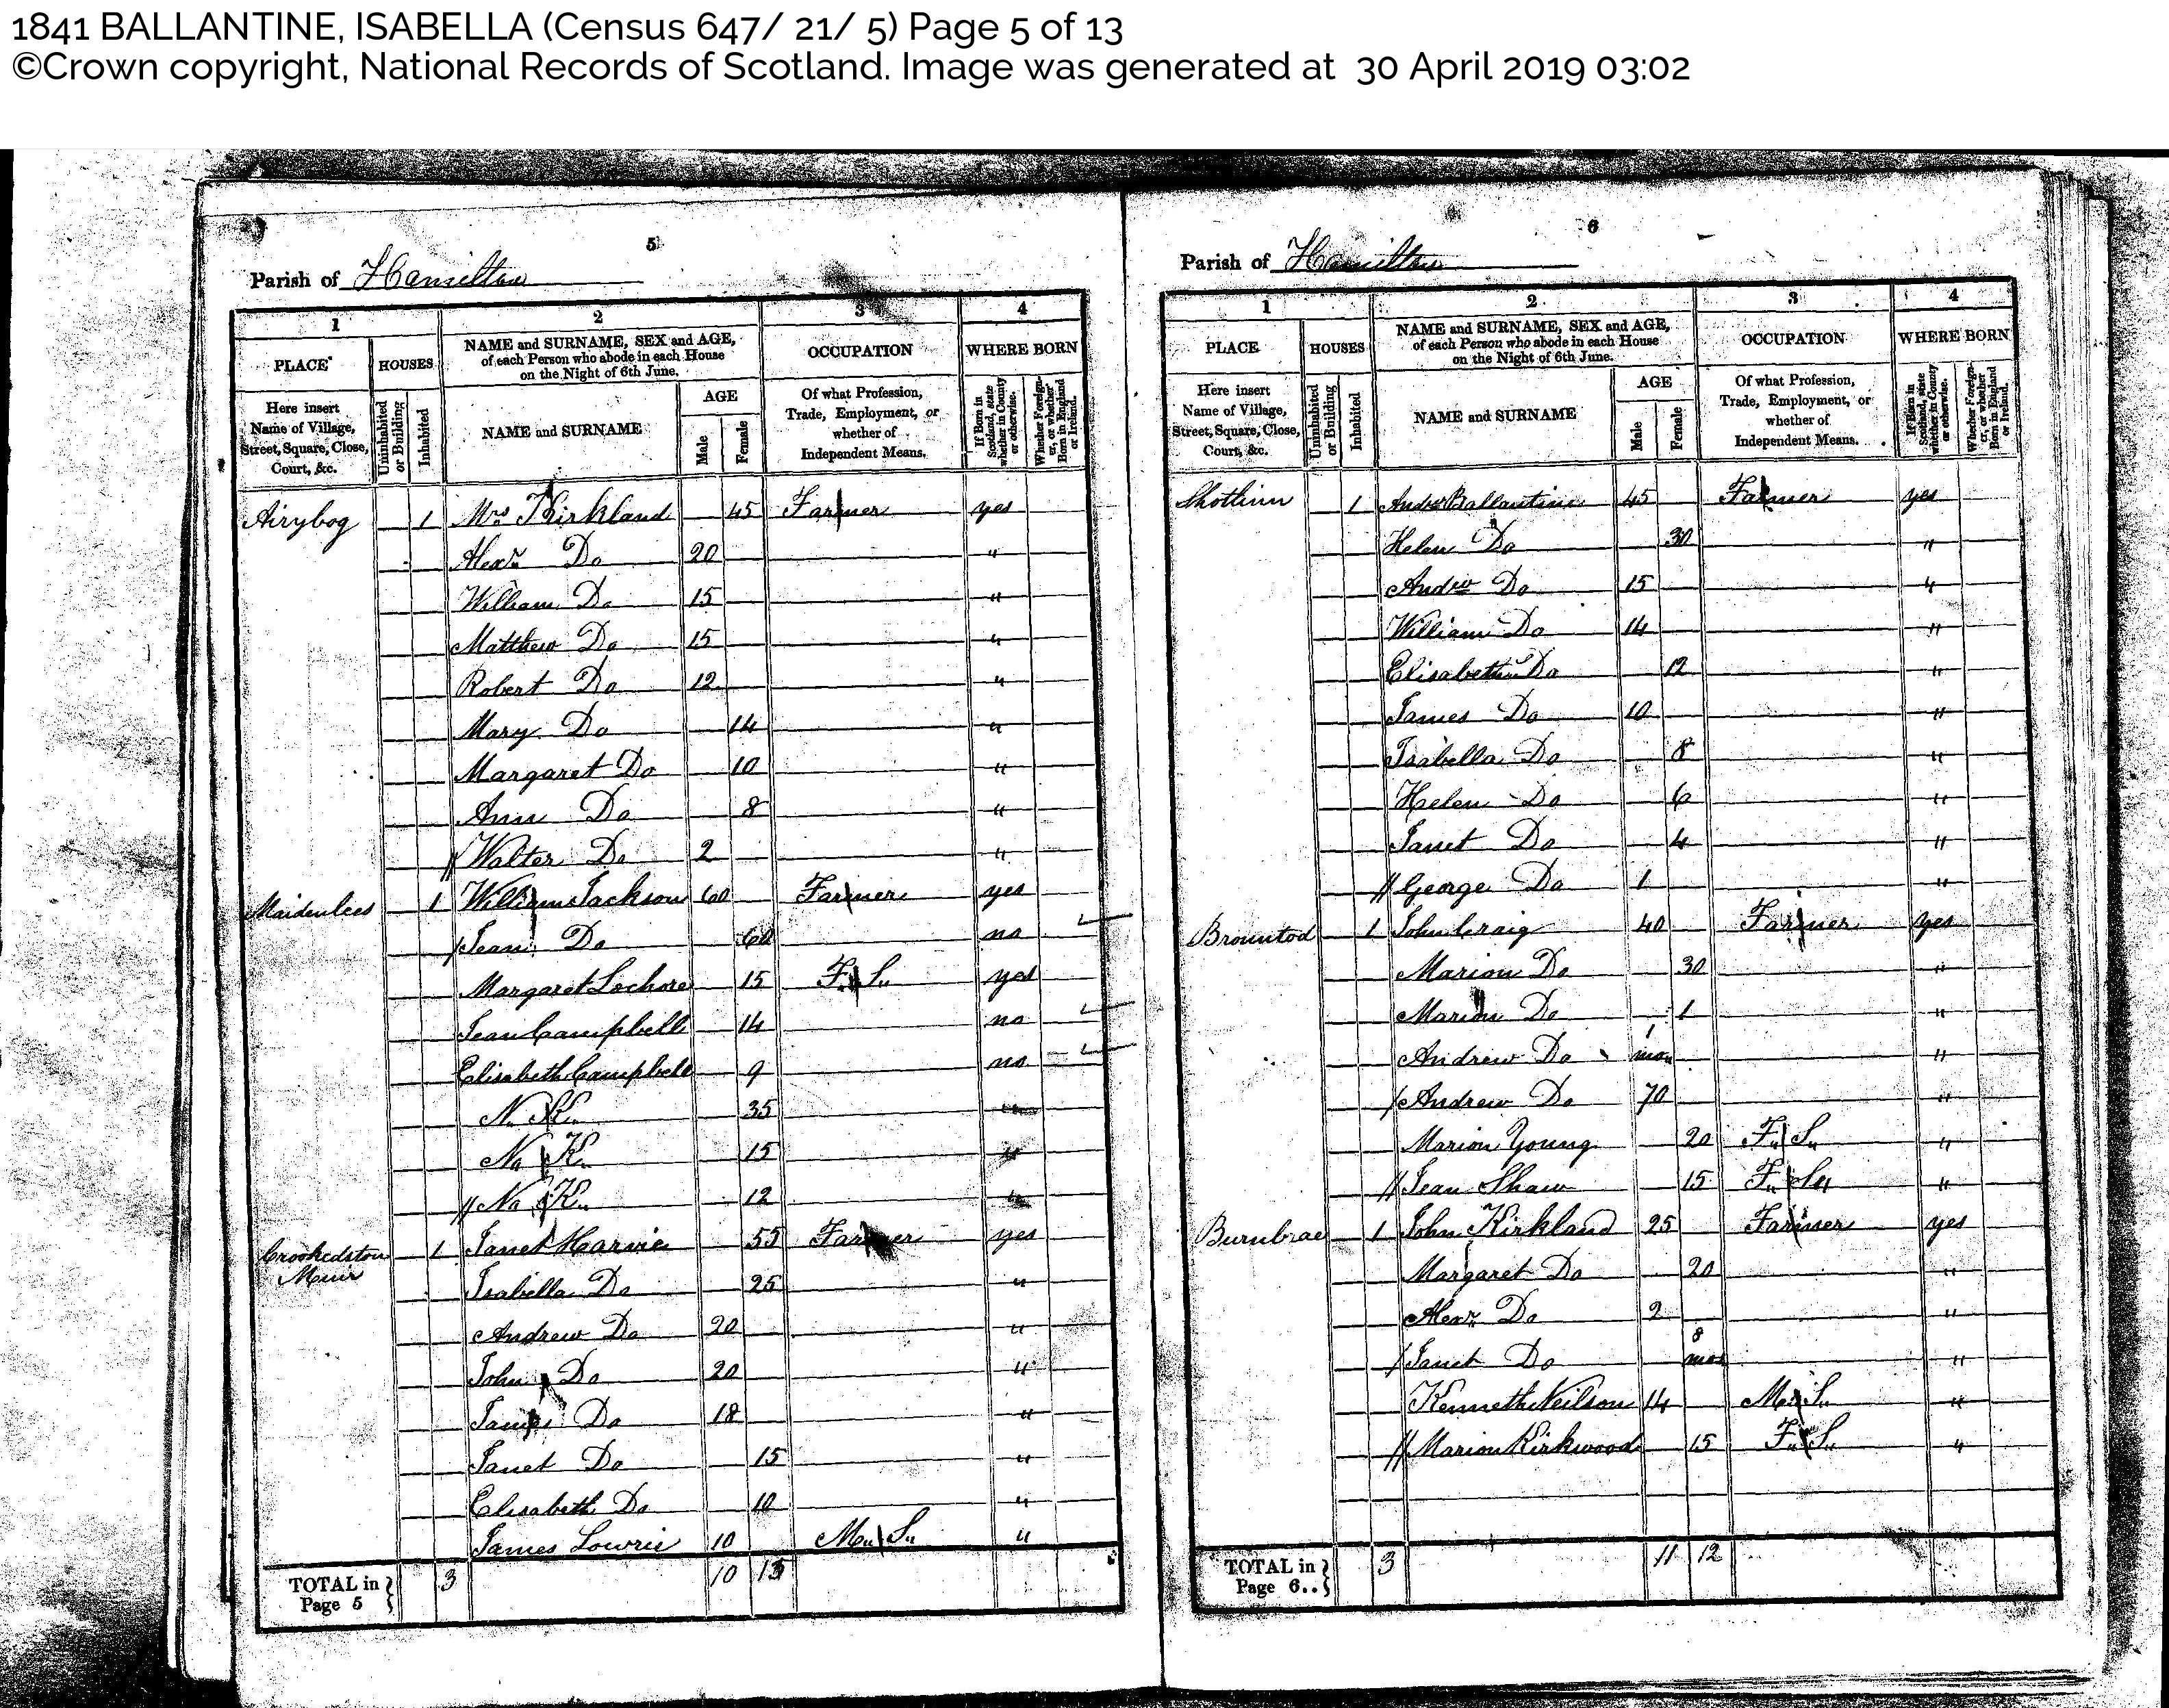 1841 BALLANTINE, ISABELLA (Census 647/ 21/ 5) Page 5 of 13
©Crown copyright, National Records of Scotland. Image was generated at 30 April 2019 03:02
5
Parish of Hamilton
1 2 3 4
PLACE HOUSES NAME and SURNAME, SEX and AGE, of each Person who abode in each House on the Night of 6th June. OCCUPATION WHERE BORN
Here insert Name of Village, Street, Square, Close, Court, &c. Uninhabited or Building Inhabited NAME and SURNAME AGE Male Female Of what Profession, Trade, Employment, or whether of Independent Means. If Born in Scotland, state whether in County or otherwise. Whether Foreigner, or whether Born in England or Ireland.
Airybog 1 Mrs Kirkland 45 Farmer yes
Alexr Do 20 "
William Do 15 "
Matthew Do 15 "
Robert Do 12 "
Mary Do 14 "
Margaret Do 10 "
Ann Do 8 "
// Walter Do 2 "
Maidenlees 1 William Jackson 60 Farmer yes
/ Jean Do 60 no
Margaret Lochore 15 F. S. yes
Jean Campbell 14 no
Elisabeth Campbell 9 no
N. K. 35
N. K. 15 "
// N. K. 12 "
Crookedston Muir 1 Janet Harvie 55 Farmer yes
Isabella Do 25 "
Andrew Do 20 "
John Do 20 "
James Do 18 "
Janet Do 15 "
Elisabeth Do 10 "
James Lowrie 10 M. S. "
TOTAL in Page 5 } 3 10 15
6
Parish of Hamilton
1 2 3 4
PLACE HOUSES NAME and SURNAME, SEX and AGE, of each Person who abode in each House on the Night of 6th June. OCCUPATION WHERE BORN
Here insert Name of Village, Street, Square, Close, Court, &c. Uninhabited or Building Inhabited NAME and SURNAME AGE Male Female Of what Profession, Trade, Employment, or whether of Independent Means. If Born in Scotland, state whether in County or otherwise. Whether Foreigner, or whether Born in England or Ireland.
Shotlinn 1 Andw Ballantine 45 Farmer yes
Helen Do 30 "
Andw Do 15 "
William Do 14 "
Elisabeth Do 12 "
James Do 10 "
Isabella Do 8 "
Helen Do 6 "
Janet Do 4 "
// George Do 1 "
Brountod 1 John Craig 40 Farmer yes
Marion Do 30 "
Marion Do 1 "
Andrew Do 1 mon "
/ Andrew Do 70 "
Marion Young 20 F. S. "
// Jean Shaw 15 F. S. "
Burnbrae 1 John Kirkland 25 Farmer yes
Margaret Do 20 "
Alexr Do 2 "
/ Janet Do 8 mos "
Kenneth Neilson 14 M. S. "
// Marion Kirkwood 15 F. S. "
TOTAL in Page 6.. } 3 11 12